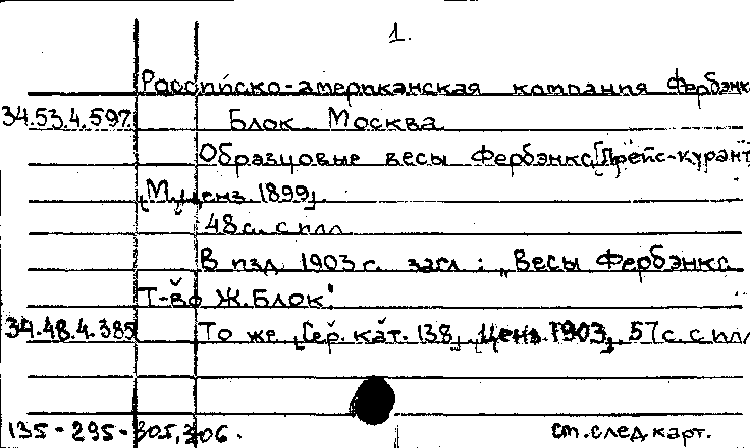 1.
Российско-американская компания Фербэнк
34.53.4.597 Блок Москва
Образцовые весы Фербэнкс [Прейс-курант
[М., ценз. 1899].
48 с. с илл.
В изд. 1903 г. загл.: „Весы Фербэнкс
Т-во Ж. Блок"
34.48.4.385 То же [Сер. кат. 138]. Ценз. 1903]. 57 с. с илл
135-295-305,306.
см. след. карт.